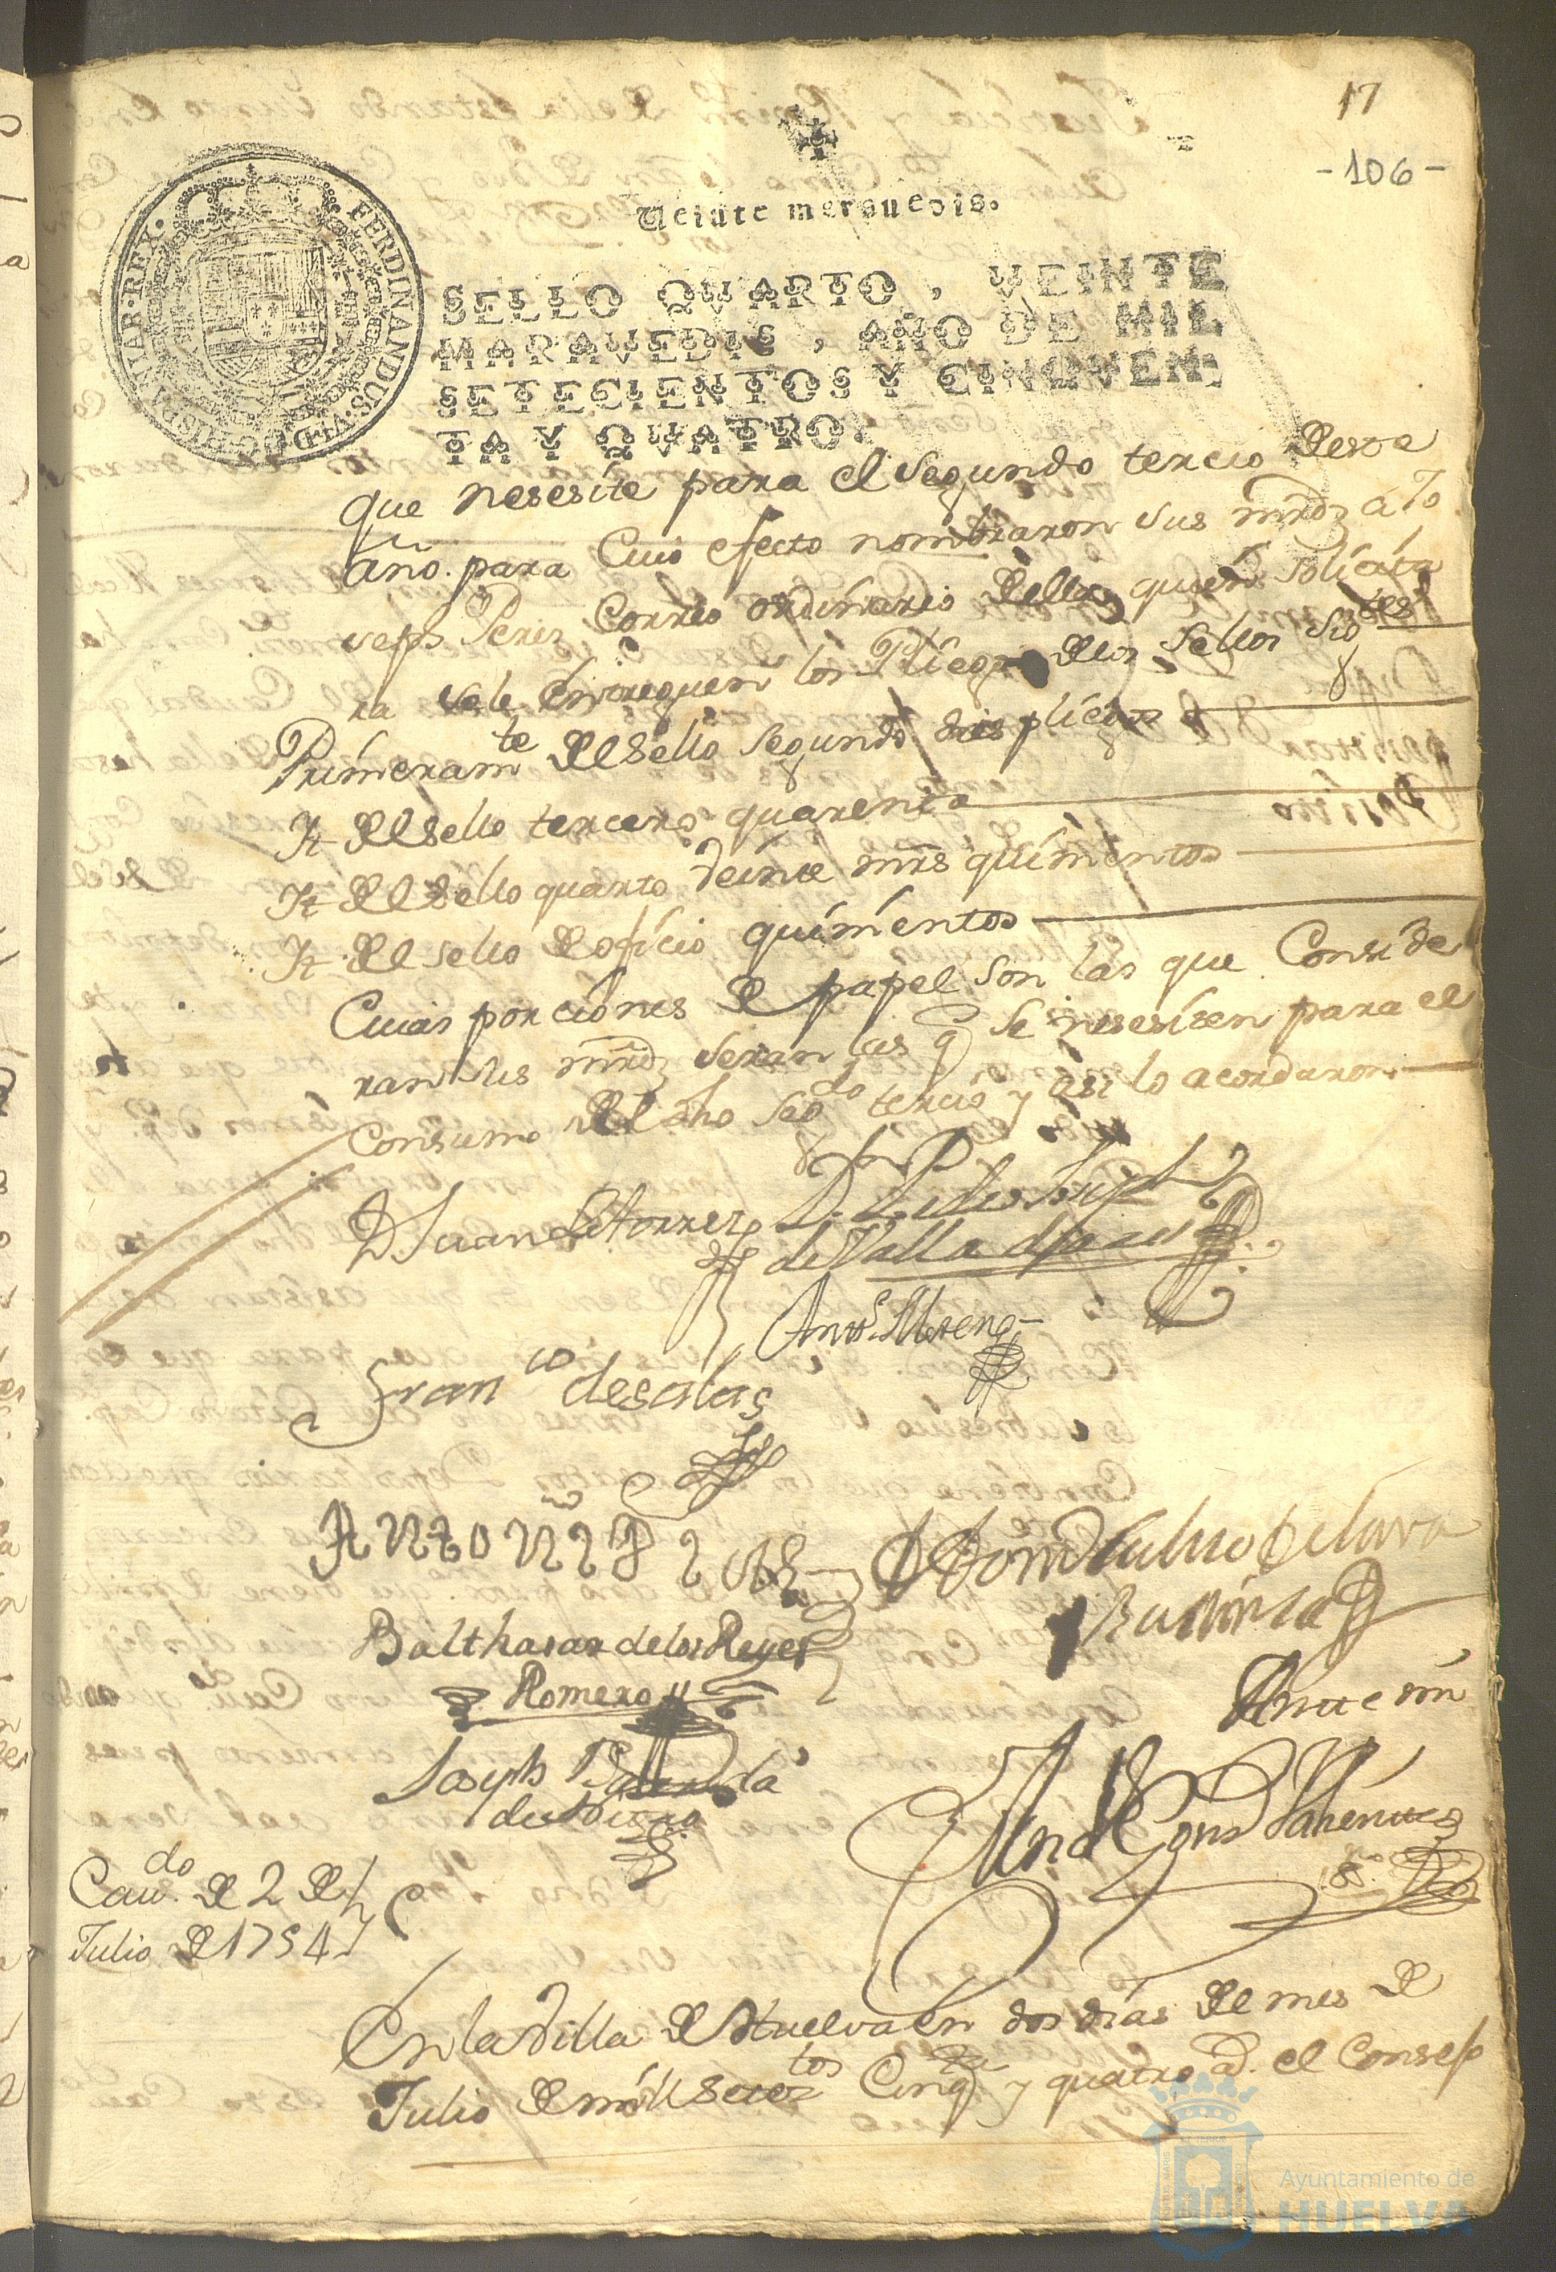 17
-106-
Veinte maravedis.
SELLO QVARTO, VEINTE
MARAVEDIS, AÑO DE MIL
SETECIENTOS Y CINQVEN-
TA Y QVATRO.
FERDINANDUS·VI·D·G·HISPANIAR·REX·
que nesesite para el segundo tercio deste
año. para Cuio efecto nombraron sus mrdz a Jo
seph Perez Correo ordinario della, quien solicita
ra se le entreguen los Pliegos de los sellos sigtes
Primeramte del sello segundo dies pliegos
It del sello tercero quarenta
It del sello quarto Veinte mrs quinientos
It del sello de oficio quinientos
Cuias porciones de papel son las que Conside
ran sus mrdz seran las q se nesesiten para el
Consumo del dho segdo tercio y asi lo acordaron
D Juan de torres
Dn Pedro Joseph
de Valladares
Antto Moreno
Franco de salas
Antonio Dias
Balthasar de los Reyes
Romero
Joseph
de
de Lara
Ante mi
Caudo de 2 de
Julio de 1754
En la Villa de Huelva en dos dias del mes de
Julio de mill setectos Cinqta y quatro as. el Consejo
Ayuntamiento de
HUELVA